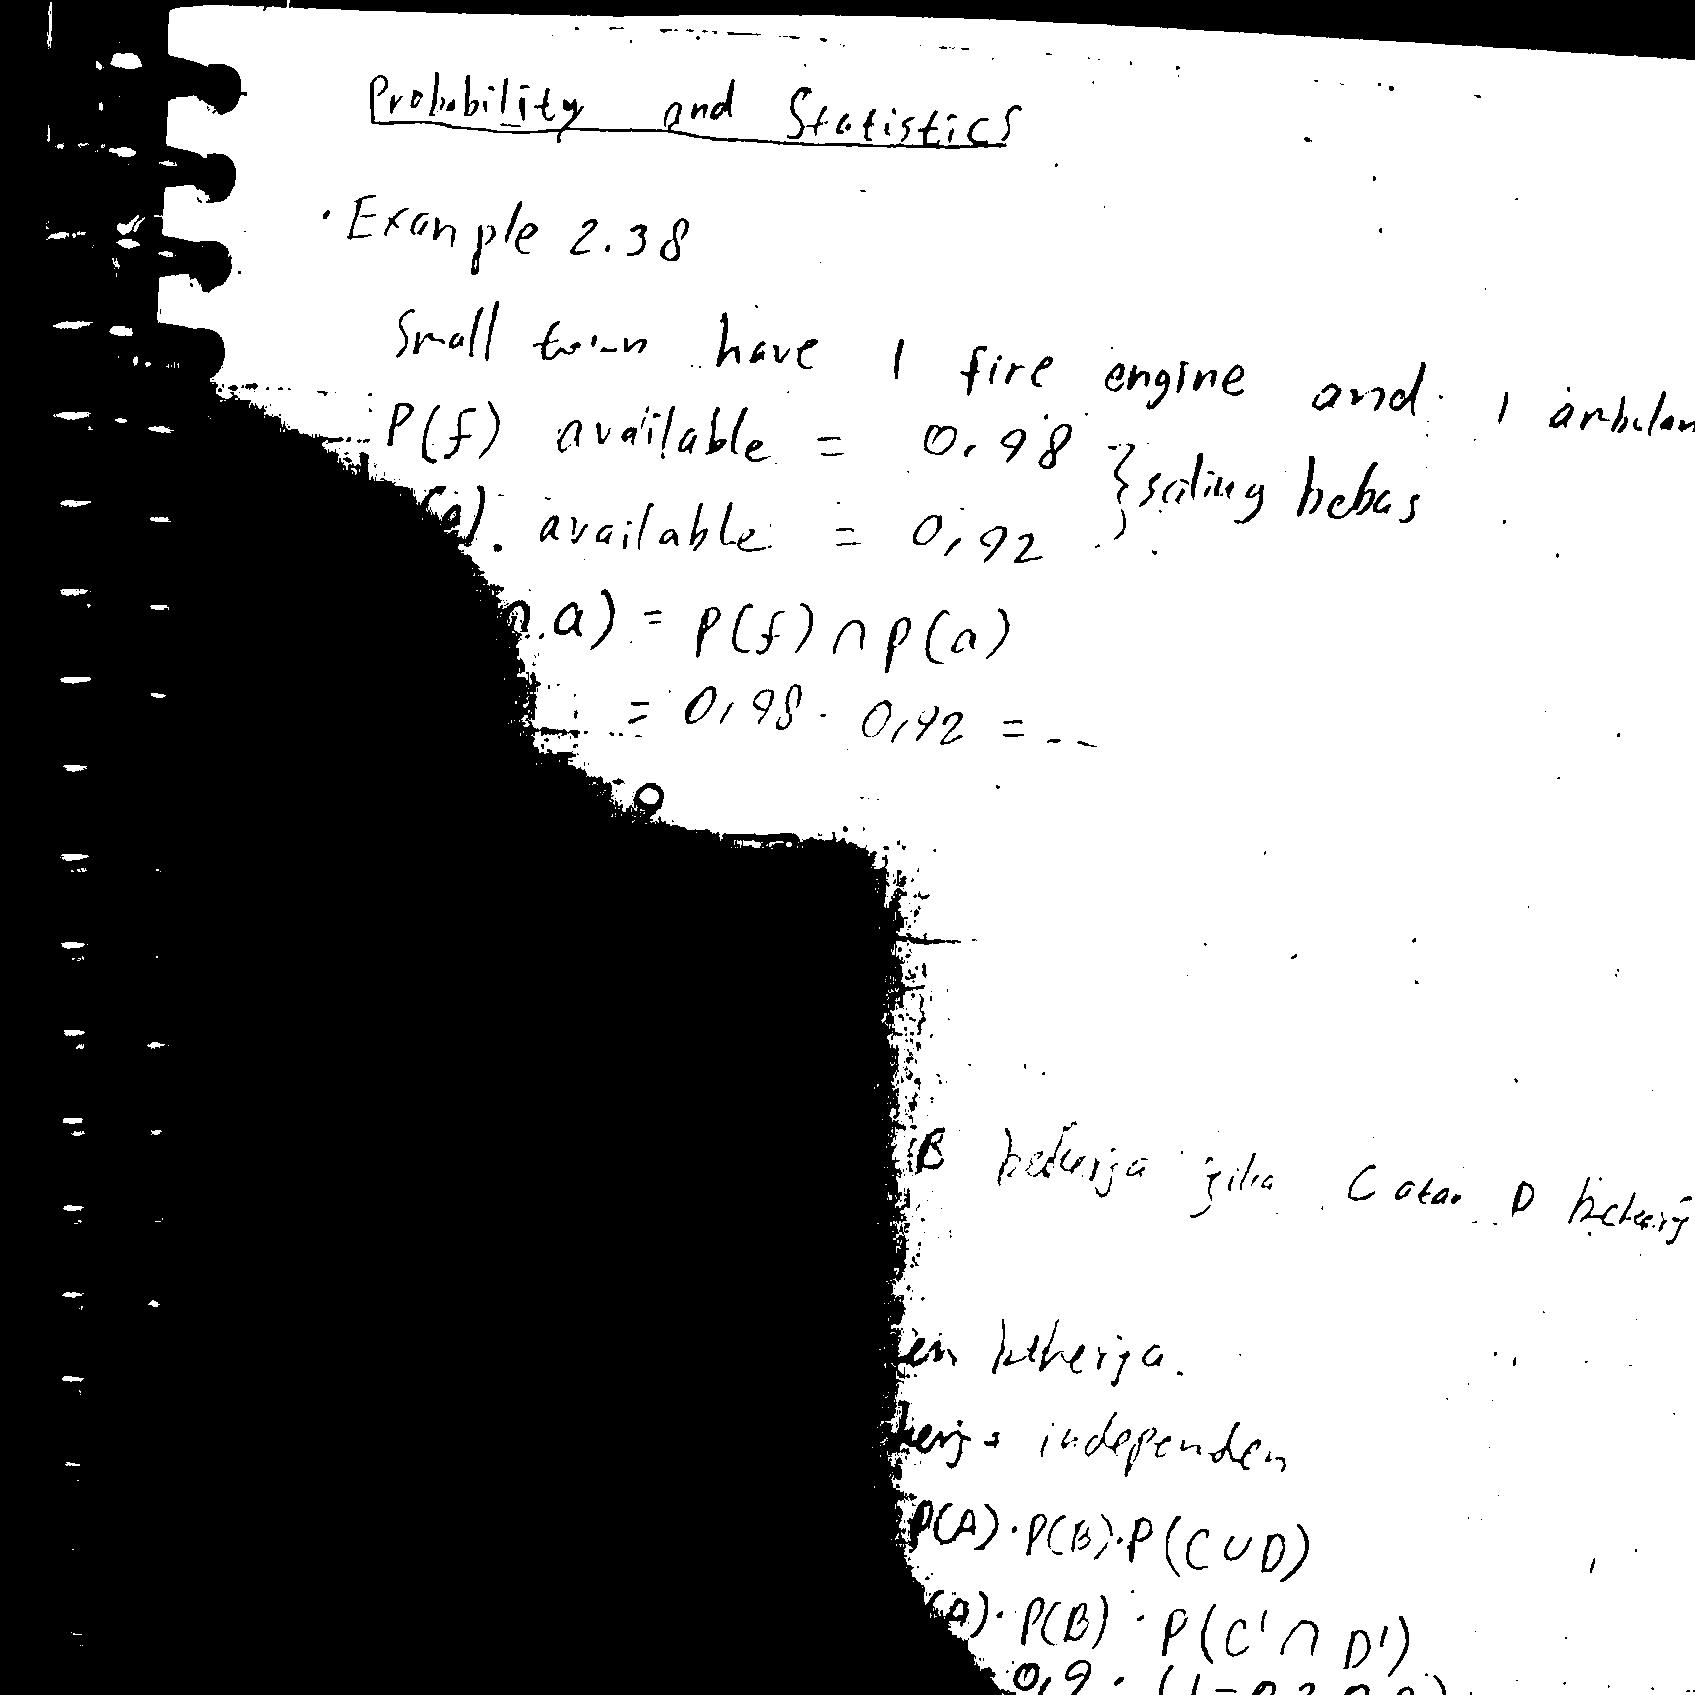 Probability and Statistics
· Example 2.38
Small town have 1 fire engine and 1 ambulan
P(f) available = 0,98
(a). available = 0,92 } saling bebas
∩ a) = P(f) ∩ P(a)
= 0,98 · 0,92 = ---
B bekerja jika C atau D bekerj
en bekerja.
kerja independen
P(A)·P(B)·P(C∪D)
(A)·P(B)·P(C'∩D')
0,9 · (1-